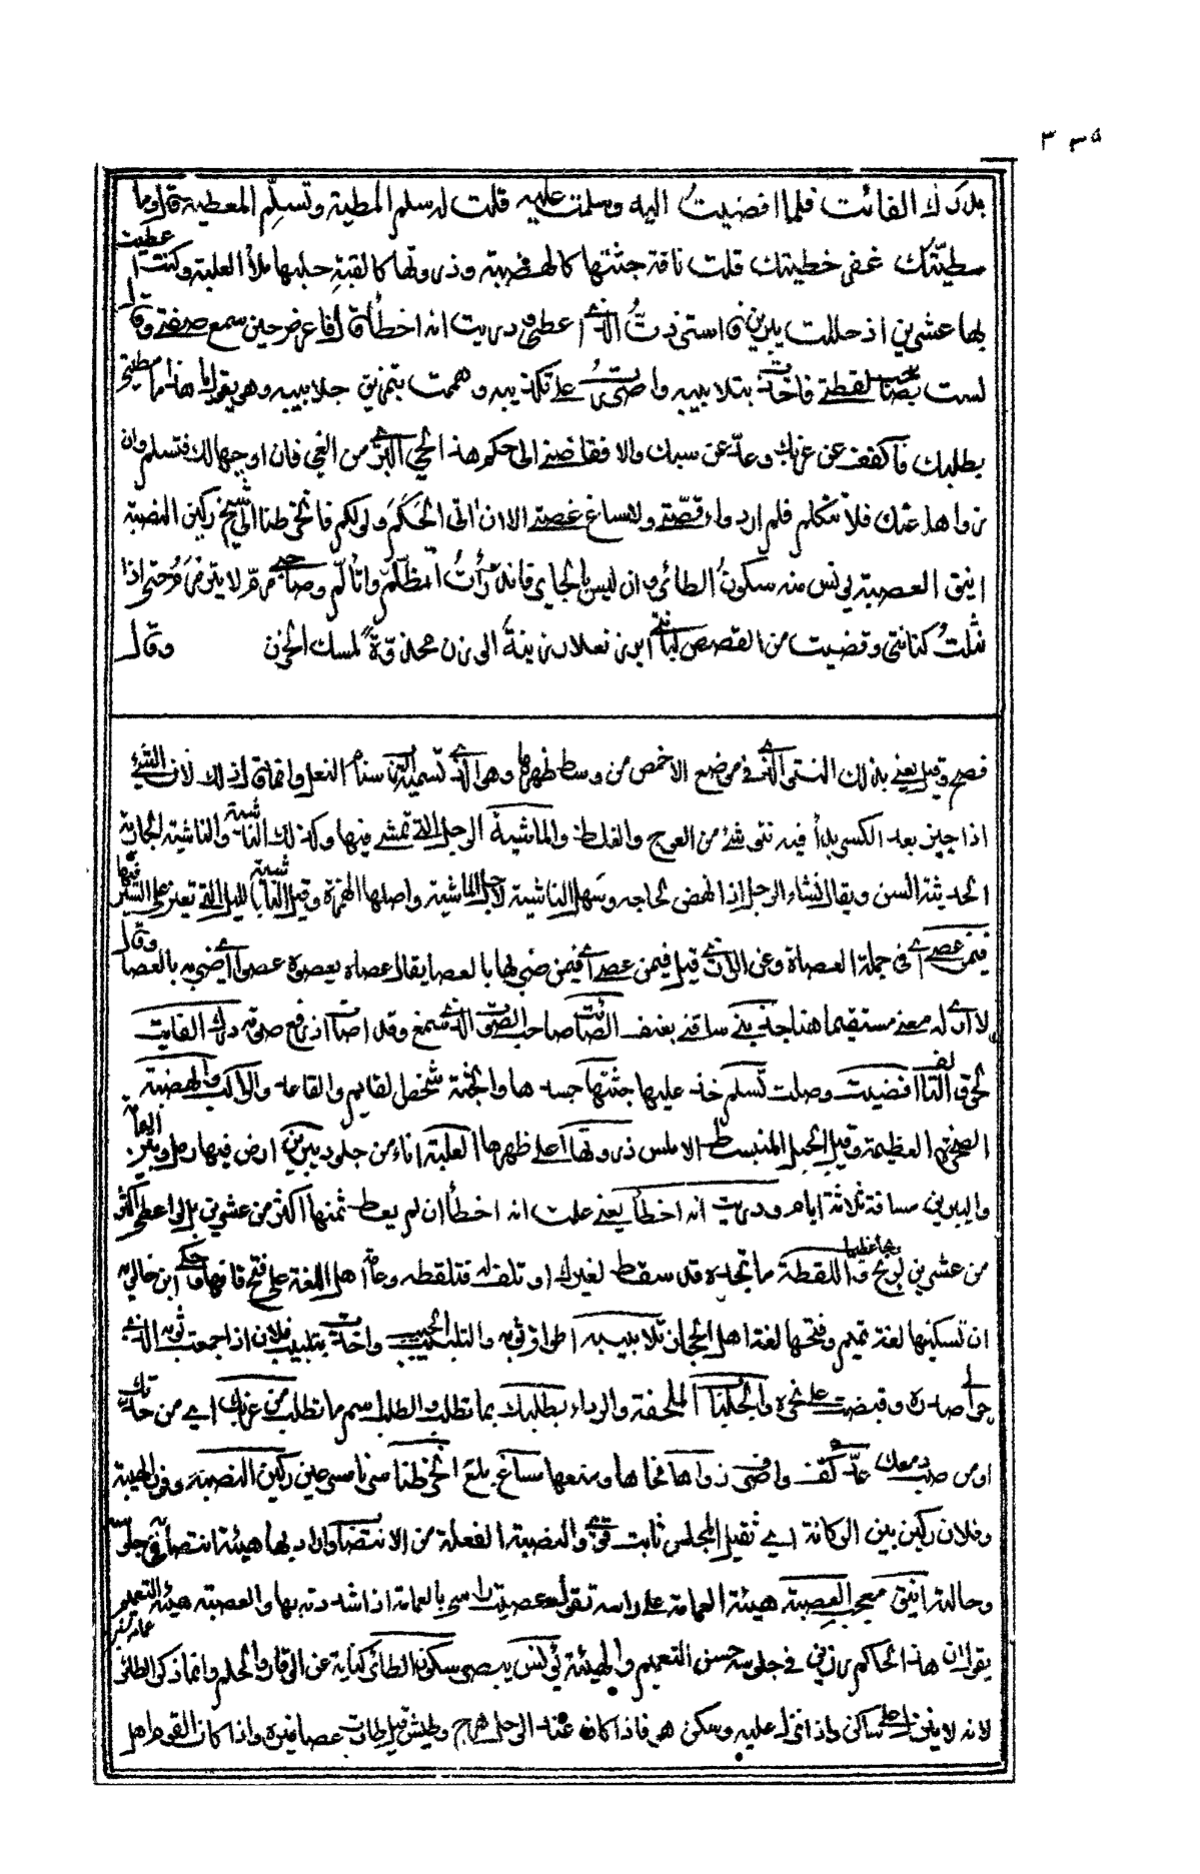 ٣٣٥
بدرك الفائت فلما افضيت اليه وسلمت عليه قلت له سلم المطية وتسلم المعطية قال وما
مطيتك غفرت خطيتك قلت ناقة جثتها كالهضبة وذروتها كالقبة وحلبها ملأ العلبة وكنت اعطيت
بها عشرين اذ حللت يبرين فاستزدت الذي اعطى ودريت انه اخطأ قال فاعرض حين سمع صفتي وقال
لست بصاحب لقطتي فاخذت بتلابيبه واصررت على تكذيبه وهممت بتمزيق جلابيبه وهو يقول يا هذا ما مطيتي
بطلبك فاكفف عن غربك وعد عن سبك والا فقاضني الى حكم هذا الحي البرئ من الغي فان اوجبها لك فتسلم وان
زواها عنك فلا تتكلم فلم ار دواء قصتي ولا مساغ غصتي الا ان اتى الحكم ولو لكم فانخرطنا الى شيخ ركين النصبة
انيق العصبة يونس منه سكون الطائر وان ليس بالجاير فاندرأت اتظلم واتألم وصاحبي مرم لا يترمرم حتى اذا
نثلت كنانتي وقضيت من القصص لبانتي ابرز نعلا رزينة الوزن محذوة لمسلك الحزن وقال
فصح وقيل يعني بذلك النتو الذي في موضع الاخمص من وسط ظهرها وهو الذي تسميه الناس سنام النعل وانما قال ذلك لان الشئ
اذا جبر بعد الكسر بدأ فيه نتو شئ من العوج والغلظ والماشية الرجل التي تمشي فيها وكذلك الناشية والناشية الجارية
الحديثة السن ويقال نشاء الرجل اذا نهض لحاجه وسهل الناشية لاجل الماشية واصلها الهمزة وقيل الناشية بالليل التي تعز على السير فيها
فيمن عصى اي في جملة العصاة وعن الرازي قيل فيمن عصى اي فيمن ضرب لها بالعصا يقال عصاه يعصوه عصوا اي ضربه بالعصا وقال
لا ارى له معنى مستقيما هنا جذبني ساقني بعنف الصائت صاحب الصوت الذي سمع وقد اصات اذا رفع صوته درك الفايت
لحوق التالف افضيت وصلت تسلم خذ عليها جثتها جسدها والجثة شخص القايم والقاعد والراكب والهضبة
الصخرة العظيمة وقيل الجبل المنبسط الاملس ذروتها اعلى ظهرها العلبة اناء من جلود يبرين ارض فيها رمل وبقر
واليبرين مسافة ثلاثة ايام ودريت انه اخطأ يعني علمت انه اخطأ ان لم يعط ثمنها اكثر من عشرين بل لو اعطى اكثر
من عشرين لربح واللقطة ما تجده قد سقط لغيرك او تلف له فتلقطه وعامة اهل اللغة على فتح قافها وحكى ابن خالويه
ان تسكينها لغة تميم وفتحها لغة اهل الحجاز تلابيبه اطواق ثوبه والتلبيب الجيب واخذت بتلبيب فلان اذا جمعت ثوبه الذي
حوالي صدره وقبضت على نحره والجلباب الملحفة والرداء بطلبك بما تطلب والطلب اسم ما تطلب من غربك اي من حدتك
او من صب دمعك عد كف واضرب زواها نحاها ومنعها مساغ بلع انخرطنا سرنا مسرعين ركين النصبة وقور الهيبة
وفلان ركين بين الركانة اي ثقيل المجلس ثابت قوي والنصبة الفعلة من الانتصاب وازاد بها هيئة انتصابه في جلوسه
وحالته انيق معجب العصبة هيئة العمامة على راسه تقول عصبت راسي بالعمامة اذا شددته بها والعصبة هيئة التعميم
يقول ان هذا الحاكم رزين في جلوسه حسن التعميم والهيئة يونس يبصر سكون الطائر كناية عن الوقار والحلم وانما ذكر الطائر
لانه لا ينزل على ساكن واذا نزل عليه وسكن هو فاذا كان عند الرجل هرج وطيش قيل طارت عصافيره واذا كان القوم اهل